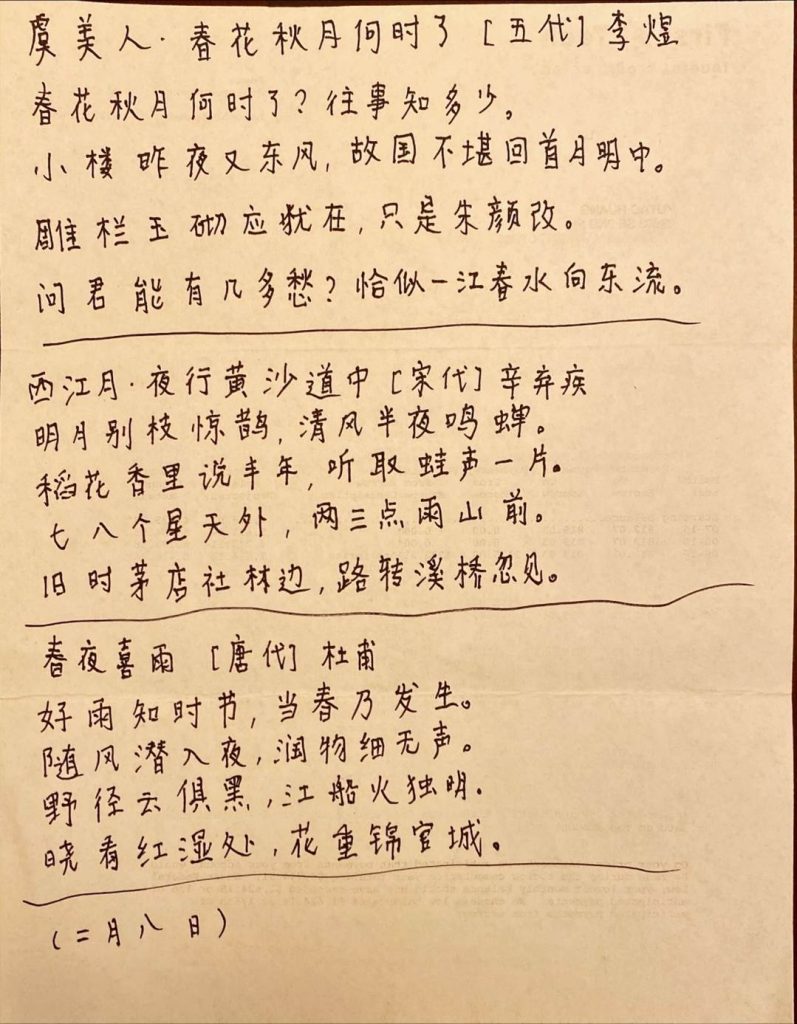 虞美人·春花秋月何时了 [五代] 李煜
春花秋月何时了？往事知多少。
小楼昨夜又东风，故国不堪回首月明中。
雕栏玉砌应犹在，只是朱颜改。
问君能有几多愁？恰似一江春水向东流。
西江月·夜行黄沙道中 [宋代] 辛弃疾
明月别枝惊鹊，清风半夜鸣蝉。
稻花香里说丰年，听取蛙声一片。
七八个星天外，两三点雨山前。
旧时茅店社林边，路转溪桥忽见。
春夜喜雨 [唐代] 杜甫
好雨知时节，当春乃发生。
随风潜入夜，润物细无声。
野径云俱黑，江船火独明.
晓看红湿处，花重锦官城。
(二月八日)